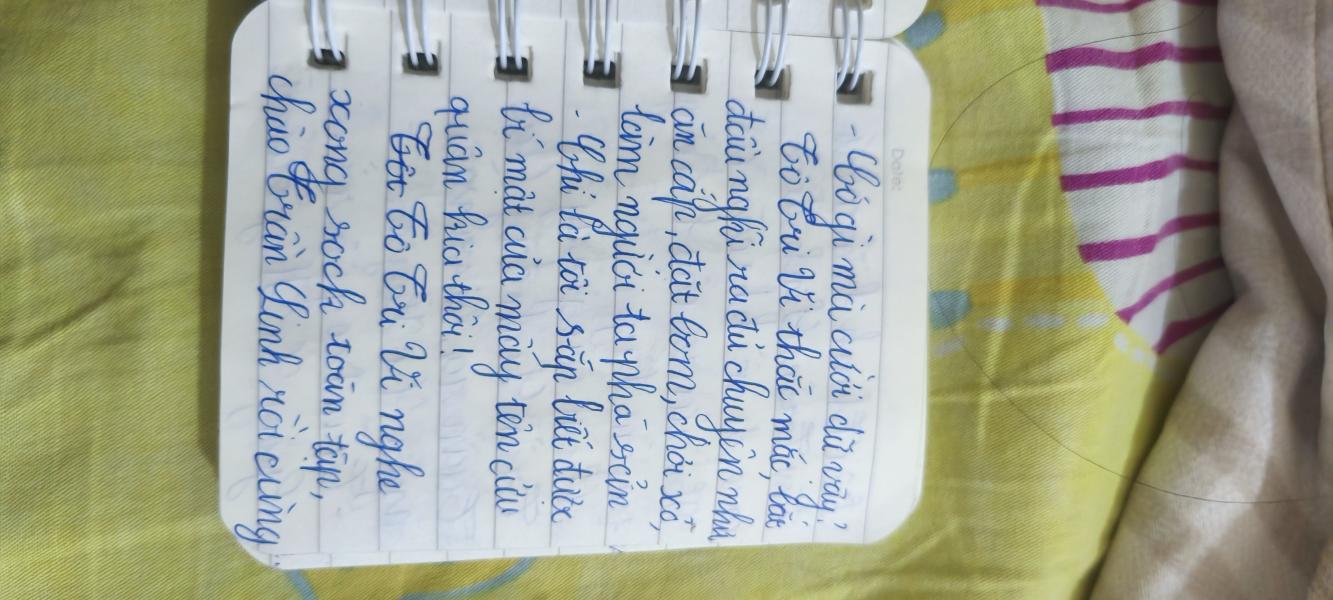 Date:
- Có gì mà cười dữ vậy?
Tô Tri Vi thắc mắc, bắt
đầu nghĩ ra đủ chuyện như
ăn cắp, đặt bom, chơi xỏ,
làm người ta phá sản
- Chỉ là tôi sắp biết được
bí mật của mấy tên cửu
quân kia thôi!
Tô Tri Vi nghe
xong sock toàn tập,
chào Trần Linh rồi cùng